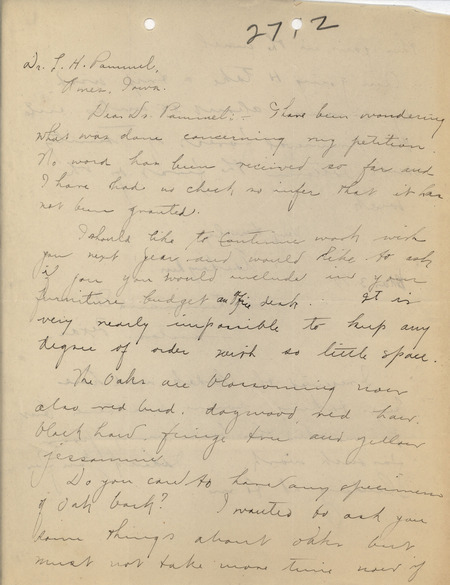 2712
Dr. L. H. Pammel,
Ames, Iowa.
Dear Dr. Pammel:- I have been wondering
what was done concerning my petition.
No word has been received so far and
I have had no check so infer that it has
not been granted.
I should like to continue work with
you next year and would like to ask
if you would include in your
furniture budget an office desk. It is
very nearly impossible to keep any
degree of order with so little space.
The oaks are blossoming now
also red bud, dogwood, red haw,
black haw, fringe tree and yellow
jessamine.
Do you care to have any specimens
of oak bark? I wanted to ask you
some things about oaks but
must not take more time now if